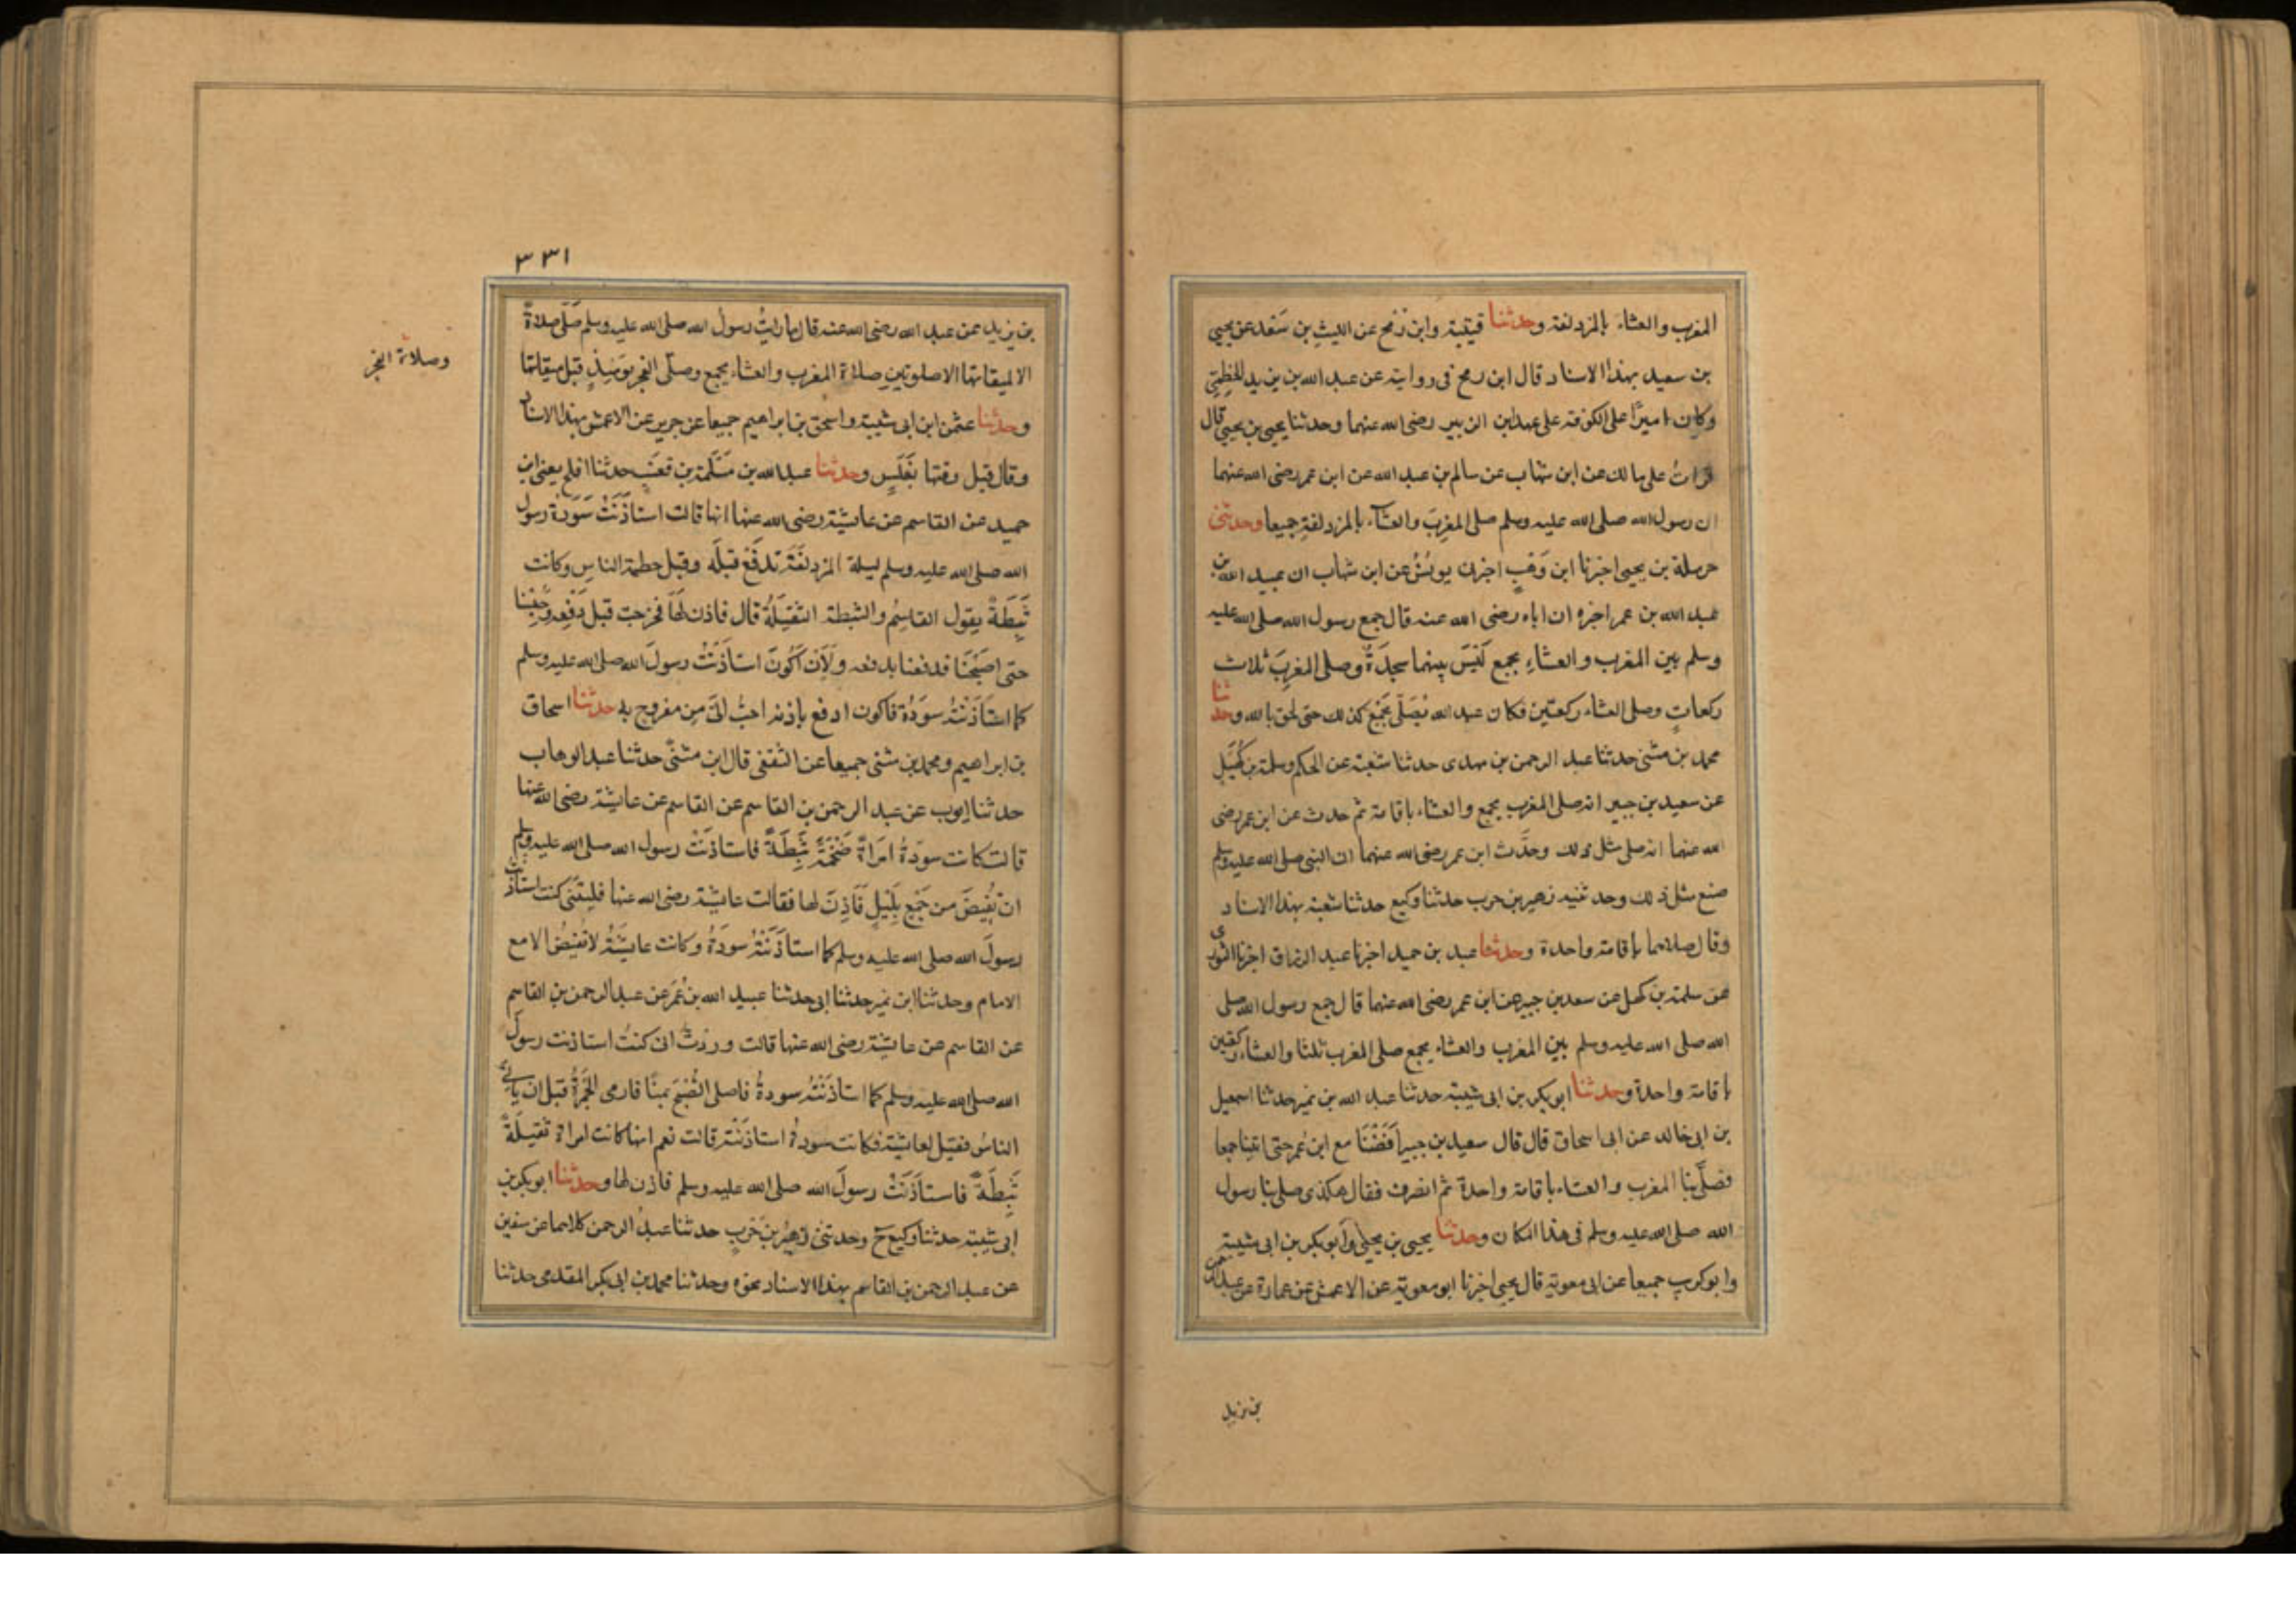 المغرب والعشاء بالمزدلفة وحدثنا قتيبة وابن رُمح عن الليثِ بن سَعْد عن يحيى
بن سعيد بهذا الاسناد قال ابن رمح فى روايته عن عبد الله بن يزيد الخطمِىّ
وكان اميرًا على الكوفة على عهد ابن الزبير رضى الله عنهما وحدثنا يحيى بن يحيى قال
قراتُ على مالك عن ابن شهاب عن سالم بن عبد الله عن ابن عمر رضى الله عنهما
ان رسول الله صلى الله عليه وسلم صلى المغربَ والعشآء بالمزدلفةِ جميعا وحدثنى
حرملة بن يحيى اخبرنا ابن وَهْبٍ اخبرنى يونسُ عن ابن شهاب ان عبيد الله بن
عبد الله بن عمر اخبره ان اباه رضى الله عنه قال جمع رسول الله صلى الله عليه
وسلم بين المغرب والعشاءِ بجمع لَيْسَ بينهما سجدَةٌ وصلى المغرِبَ ثلاث
ركعاتٍ وصلى العشاء ركعتين فكان عبد الله يُصَلّى بجَمْعٍ كذلك حتى لحق بالله وحدثنا
محمد بن مثنى حدثنا عبد الرحمن بن مهدى حدثنا شعبة عن الحكم وسلمة بن كُهَيْلٍ
عن سعيد بن جبير انه صلى المغرب بجمع والعشاء باقامة ثم حدث عن ابن عمر رضى
الله عنهما انه صلى مثل ذلك وحَدَّث ابن عمر رضى الله عنهما ان النبى صلى الله عليه وسلم
صنع مثل ذلك وحدثنيه زهير بن حرب حدثنا وكيع حدثنا شعبة بهذا الاسناد
وقال صلاهما باقامة واحدة وحدثنا عبد بن حميد اخبرنا عبد الرزاق اخبرنا الثورى
عن سلمة بن كهيل عن سعيد بن جبير عن ابن عمر رضى الله عنهما قال جمع رسول الله صلى
الله صلى الله عليه وسلم بين المغرب والعشاء بجمع صلى المغرب ثلثا والعشاء ركعتين
باقامة واحدة وحدثنا ابو بكر بن ابى شيبة حدثنا عبد الله بن نمير حدثنا اسمعيل
بن ابى خالد عن ابى اسحاق قال قال سعيد بن جبير اَفَضْنَا مع ابن عُمر حتى اتينا جمعا
فصلّى بنا المغرب والعشاء باقامة واحدة ثم انصرف فقال هكذى صلى بنا رسول
الله صلى الله عليه وسلم فى هذا المكان وحدثنا يحيى بن يحيى وابو بكر بن ابى شيبة
وابو كريب جميعا عن ابى معوية قال يحيى اخبرنا ابو معوية عن الاعمش عن عمارة عن عبد الرحمن
بن يزيد
٣٣١
بن يزيد عن عبد الله رضى الله عنه قال ما رايتُ رسول الله صلى الله عليه وسلم صَلّى صلاةً
الا لميقاتها الا صلوتين صلاة المغرب والعشاء بجمع وصلّى الفجر يومَئِذٍ قبل ميقاتها
وحدثنا عثمن ابن ابى شيبة واسحق بن ابراهيم جميعا عن جرير عن الاعمش بهذا الاسناد
وقال قبل وقتها بغَلَسٍ وحدثنا عبد الله بن مَسْلَمة بن قَعْنَبٍ حدثنا افلح يعنى ابن
حميد عن القاسم عن عايشة رضى الله عنها انها قالت استاذَنَتْ سَوْدة رسول
الله صلى الله عليه وسلم ليلة المزدلفَة تدفَعُ قبلَه وقبل حطمة الناس وكانت
ثَبِطَةً يقول القاسِمُ والثبطة الثقيلَةُ قال فاذن لهَا فخرجت قبل دَفْعِه وحُبِسْنا
حتى اصبَحْنَا فدفعنا بدفعه ولَاَن اَكُونَ استاذَنْتُ رسولَ الله صلى الله عليه وسلم
كما استاَذَنَتْهُ سوْدَةُ فاكون ادفع باذنه احبُّ اِلىَّ من مفروح به حدثنا اسحاق
بن ابراهيم ومحمد بن مثنى جميعا عن الثقفى قال ابن مثنّى حدثنا عبد الوهاب
حدثنا ايوب عن عبد الرحمن بن القاسم عن القاسم عن عايشة رضى الله عنها
قالت كانت سودَةُ امَراةً ضَخْمَةً ثَبِطَةً فاستاذَنَتْ رسول الله صلى الله عليه وسلم
ان تُفِيضَ من جَمْعٍ بِلَيْلٍ فَاَذِنَ لها فقالت عايشة رضى الله عنها فليتَنى كنت استاذنت
رسولَ الله صلى الله عليه وسلم كما استاذَنَتْهُ سودَةُ وكانت عايشَةُ لا تفيضُ الا مع
الامام وحدثنا ابن نمير حدثنا ابى حدثنا عبيد الله بن عُمَر عن عبد الرحمن بن القاسم
عن القاسم عن عايشة رضى الله عنها قالت وددتُ ان كنتُ استاذنت رسولَ
الله صلى الله عليه وسلم كما استاذَنَتْهُ سودةُ فاصلى الصُّبْحَ بمِنًا فارمى الجَمْرةَ قبل ان ياتى
الناسُ فقيل لعايشة فكانت سودةُ استاذَنَتْه قالت نعم انها كانت امراة ثقيلَةً
ثَبِطَةً فاستاَذَنَتْ رسولَ الله صلى الله عليه وسلم فاذن لها وحدثنا ابو بكر بن
ابى شيبة حدثنا وكيع ح وحدثنى زهيرُ بن حَرْبٍ حدثنا عبدُ الرحمن كلاهما عن سفين
عن عبد الرحمن بن القاسم بهذا الاسناد نحوه وحدثنا محمد بن ابى بكر المقدمى حدثنا
وصلاة الفجر